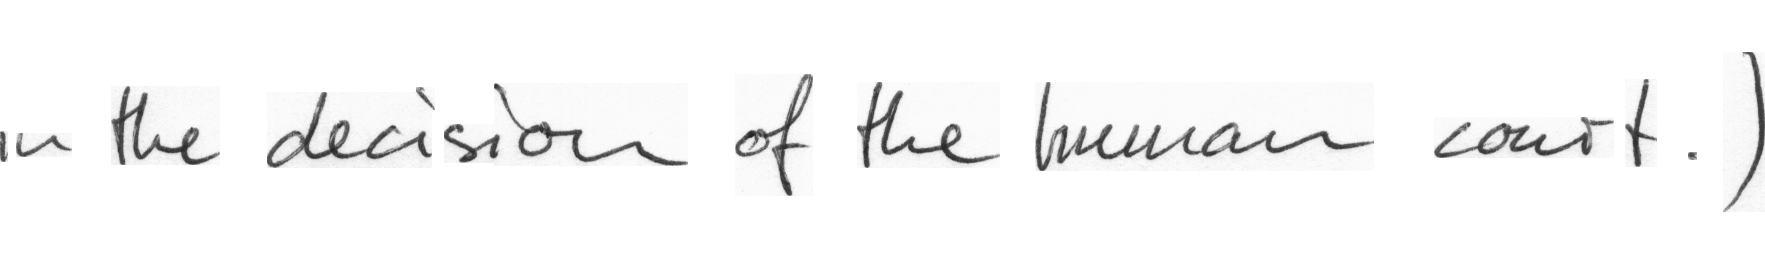 in the decision of the human court.)